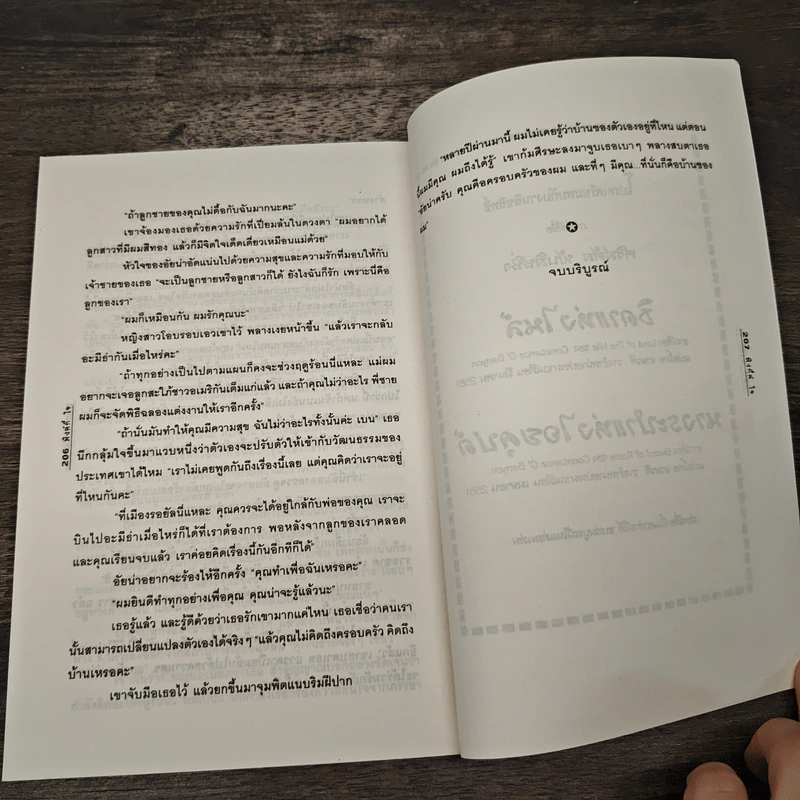 "ถ้าลูกชายของคุณไม่ดื้อกับฉันมากนะคะ"
เขาจ้องมองเธอด้วยความรักที่เปี่ยมล้นในดวงตา "ผมอยากได้
ลูกสาวที่มีผมสีทอง แล้วก็มีจิตใจเด็ดเดี่ยวเหมือนแม่ด้วย"
หัวใจของอัยน่าอัดแน่นไปด้วยความสุขและความรักที่มอบให้กับ
เจ้าชายของเธอ "จะเป็นลูกชายหรือลูกสาวก็ได้ ยังไงฉันก็รัก เพราะนี่คือ
ลูกของเรา"
"ผมก็เหมือนกัน ผมรักคุณนะ"
หญิงสาวโอบรอบเอวเขาไว้ พลางเงยหน้าขึ้น "แล้วเราจะกลับ
อะมีธ่ากันเมื่อไหร่คะ"
"ถ้าทุกอย่างเป็นไปตามแผนก็คงจะช่วงฤดูร้อนนี้แหละ แม่ผม
อยากจะเจอลูกสะใภ้ชาวอเมริกันเต็มแก่แล้ว และถ้าคุณไม่ว่าอะไร พี่ชาย
ผมก็จะจัดพิธีฉลองแต่งงานให้เราอีกครั้ง"
"ถ้านั่นมันทำให้คุณมีความสุข ฉันไม่ว่าอะไรทั้งนั้นค่ะ เบน" เธอ
นึกกลุ้มใจขึ้นมาแวบหนึ่งว่าตัวเองจะปรับตัวให้เข้ากับวัฒนธรรมของ
ประเทศเขาได้ไหม "เราไม่เคยพูดกันถึงเรื่องนี้เลย แต่คุณคิดว่าเราจะอยู่
ที่ไหนกันคะ"
"ที่เมืองรอยัลนี่แหละ คุณควรจะได้อยู่ใกล้กับพ่อของคุณ เราจะ
บินไปอะมีธ่าเมื่อไหร่ก็ได้ที่เราต้องการ พอหลังจากลูกของเราคลอด
และคุณเรียนจบแล้ว เราค่อยคิดเรื่องนี้กันอีกทีก็ได้"
อัยน่าอยากจะร้องไห้อีกครั้ง "คุณทำเพื่อฉันเหรอคะ"
"ผมยินดีทำทุกอย่างเพื่อคุณ คุณน่าจะรู้แล้วนะ"
เธอรู้แล้ว และรู้ดีด้วยว่าเธอรักเขามากแค่ไหน เธอเชื่อว่าคนเรา
นั้นสามารถเปลี่ยนแปลงตัวเองได้จริงๆ "แล้วคุณไม่คิดถึงครอบครัว คิดถึง
บ้านเหรอคะ"
เขาจับมือเธอไว้ แล้วยกขึ้นมาจุมพิตแนบริมฝีปาก
206 พิงค์กี้ ใจ
"หลายปีผ่านมานี้ ผมไม่เคยรู้ว่าบ้านของตัวเองอยู่ที่ไหน แต่ตอน
นี้ผมมีคุณ ผมถึงได้รู้" เขาก้มศีรษะลงมาจูบเธอเบาๆ พลางสบตาเธอ
"อัยน่าครับ คุณคือครอบครัวของผม และที่ๆ มีคุณ...ที่นั่นก็คือบ้านของ
ผม"
จบบริบูรณ์
207 พิงค์กี้ ใจ